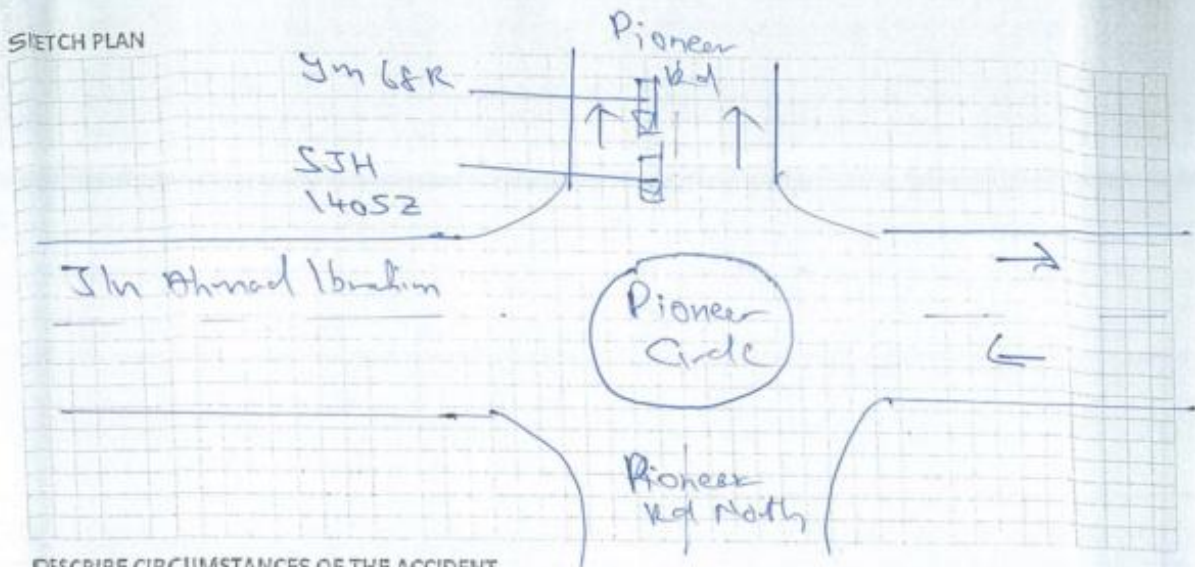 SKETCH PLAN
Pioneer
Rd
Ym 68R
SJH
1405Z
Jln Ahmad Ibrahim
Pioneer
Circle
Pioneer
Rd North
DESCRIBE CIRCUMSTANCES OF THE ACCIDENT